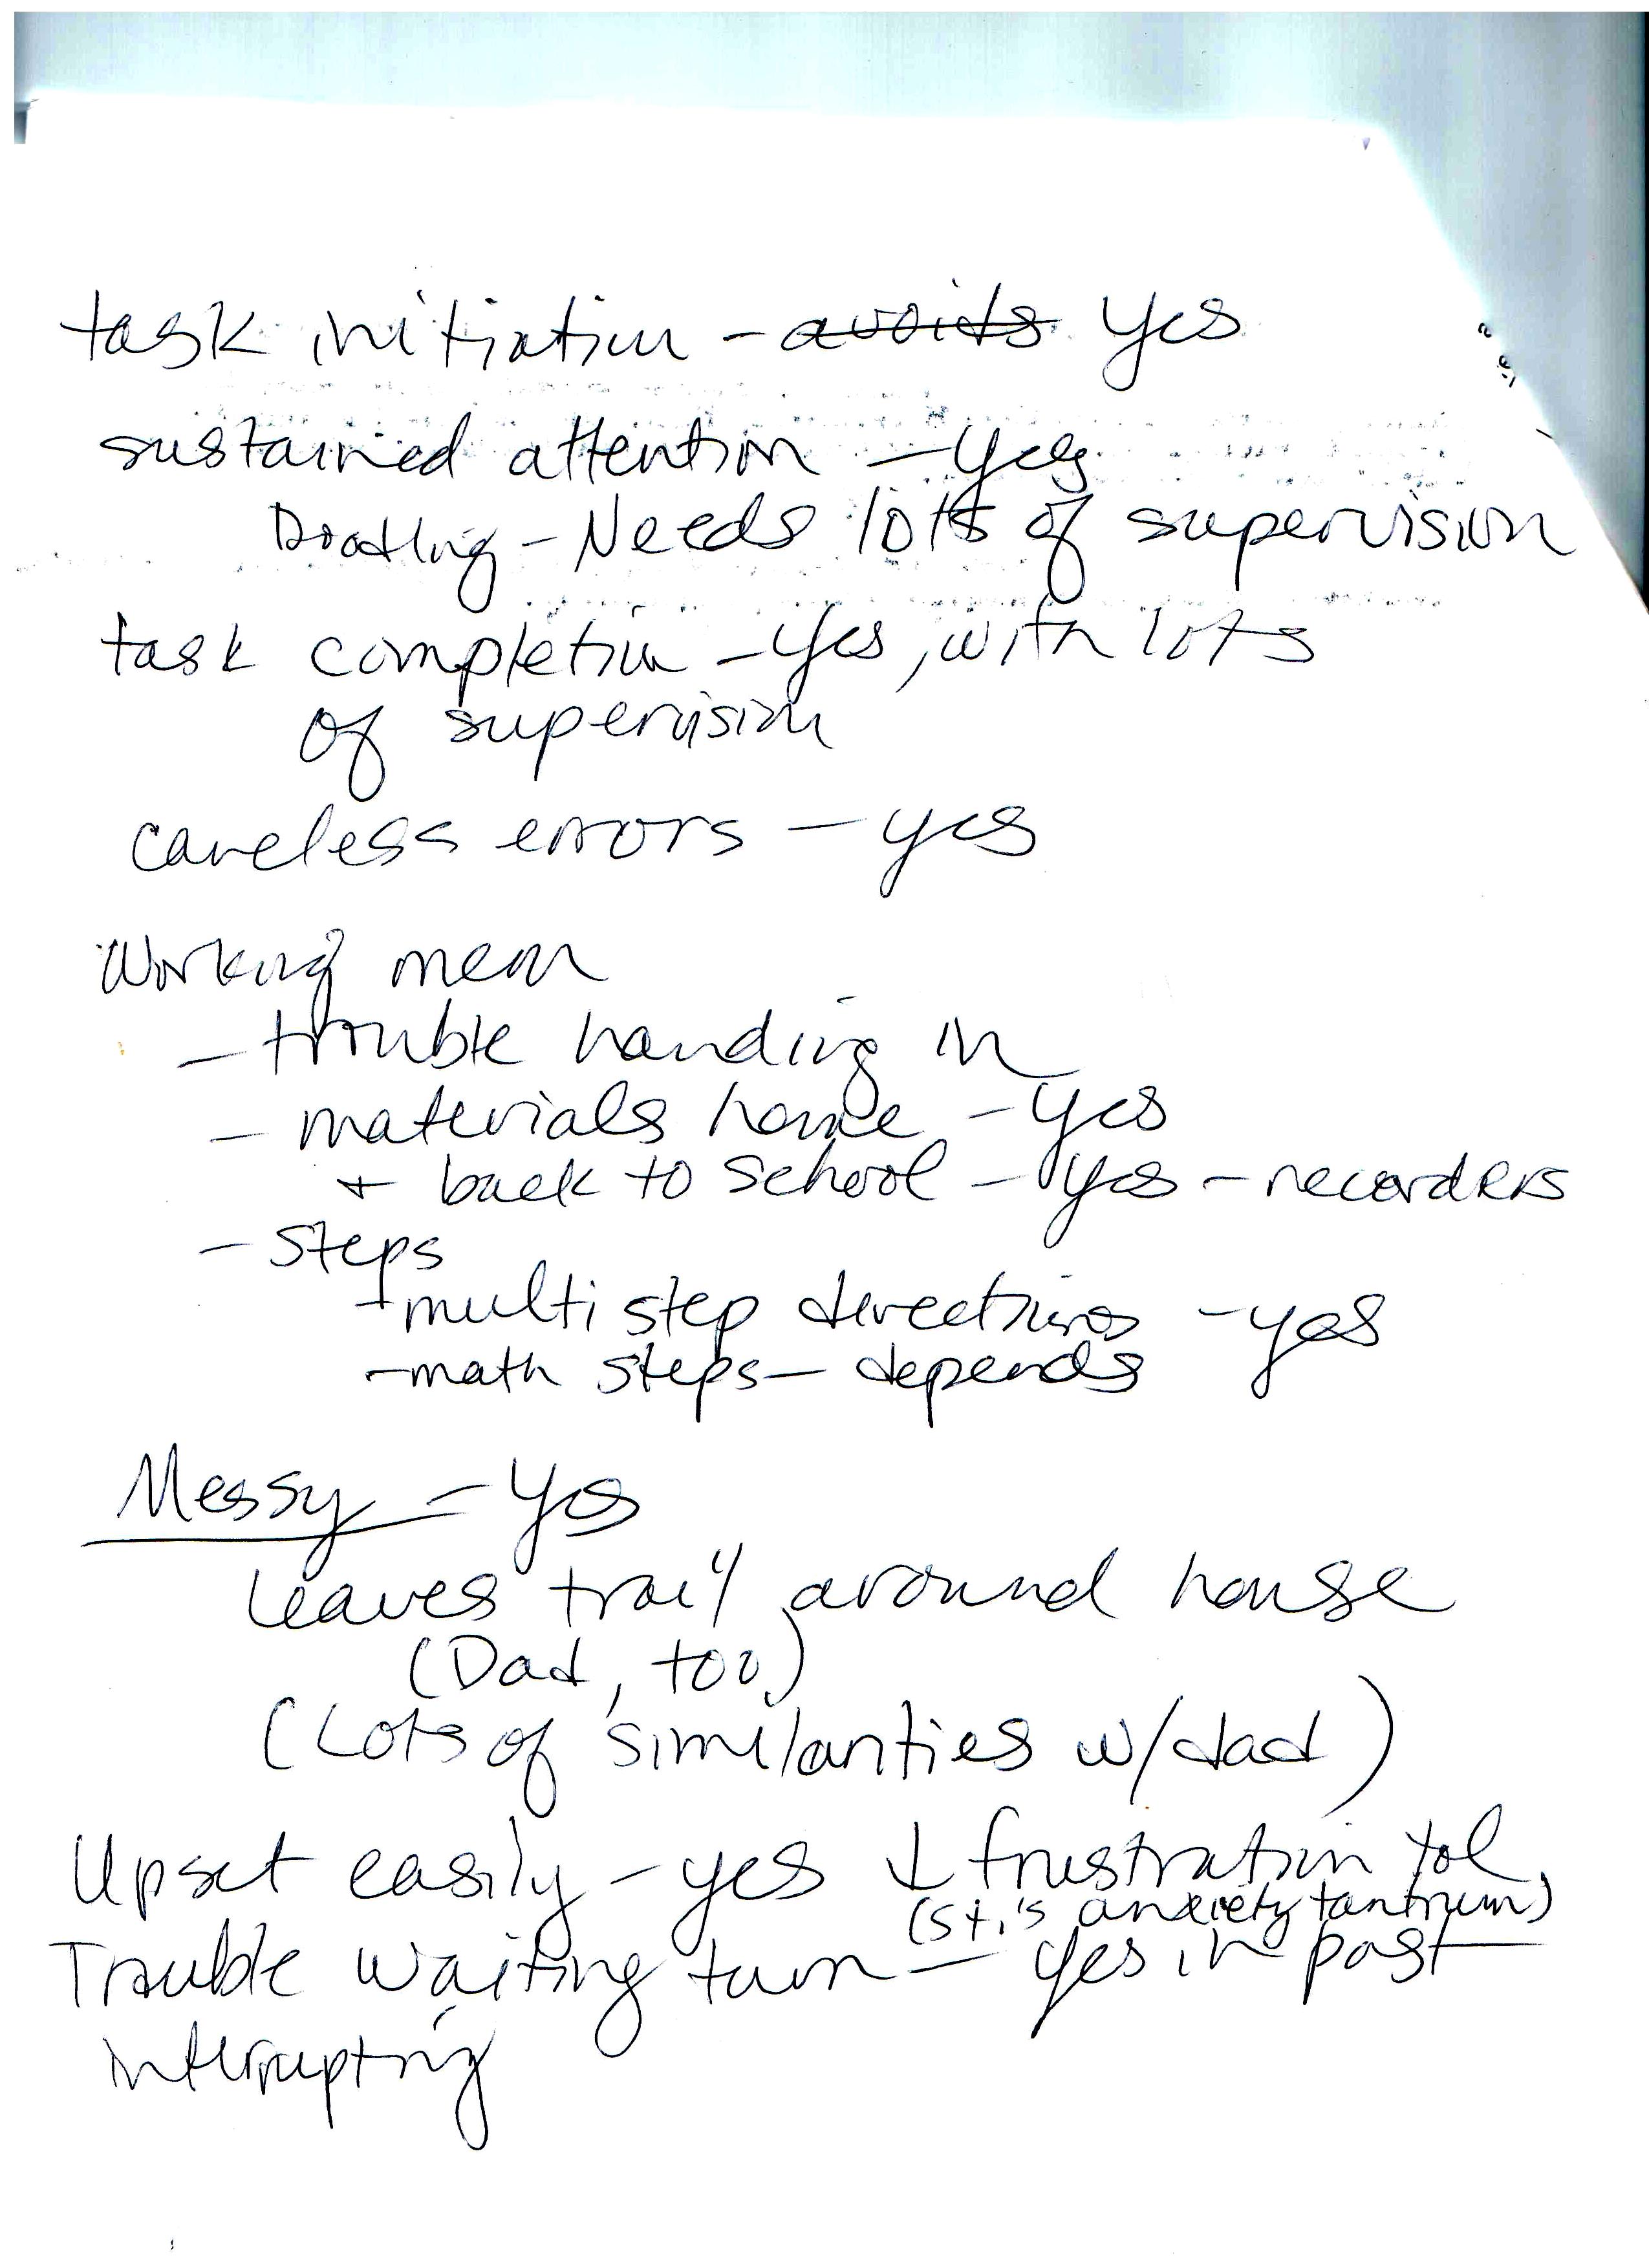 task initiation - avoids yes
sustained attention - yes
Doodling - Needs lots of supervision
task completion - yes, with lots
of supervision
careless errors - yes
Working mem
- trouble handing in
- materials home - yes
+ back to school - yes - recorders
- steps
- multi step directions - yes
- math steps - depends
Messy - yes
leaves trail around house
(Dad, too)
(Lots of similarities w/dad)
Upset easily - yes ↓ frustration tol.
(sti's anxiety tantrum)
Trouble waiting turn - yes in past
interrupting